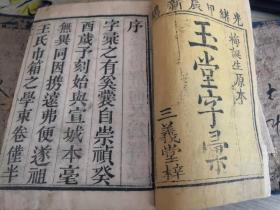 光緒甲辰新鐫
梅誕生原本
玉堂字彙
三義堂梓
序
字彙之有奚囊自崇禎癸
酉歲予刻始與宣城本毫
無異同因攜遠弗便遂祖
王氏巾箱之學東卷僅半